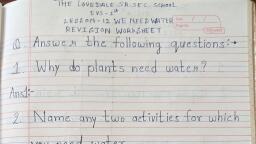 THE LOVEDALE SR. SEC. SCHOOL
EVS - 1st
LESSON - 12 WE NEED WATER
REVISION WORKSHEET
Q. Answer the following questions:-
1. Why do plants need water?
Ans:-
2. Name any two activities for which
you need water